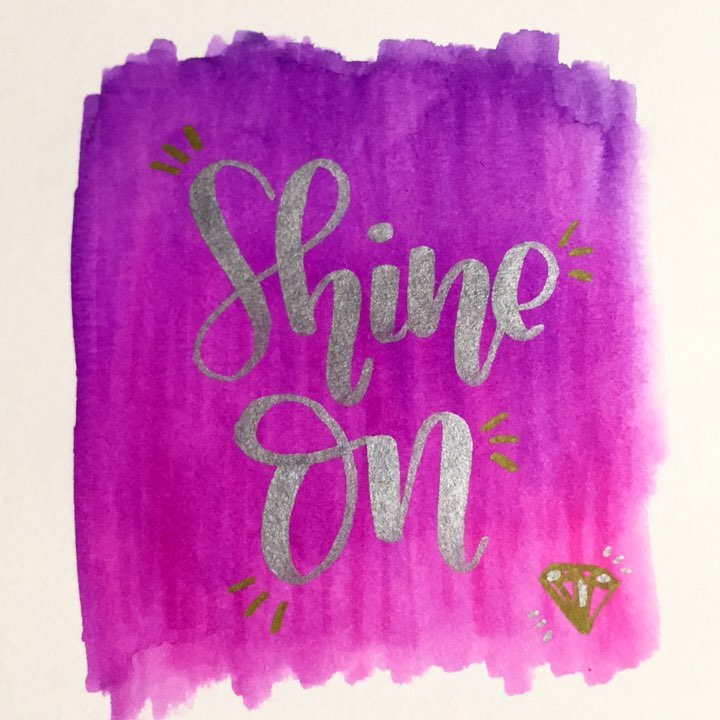 Shine
On